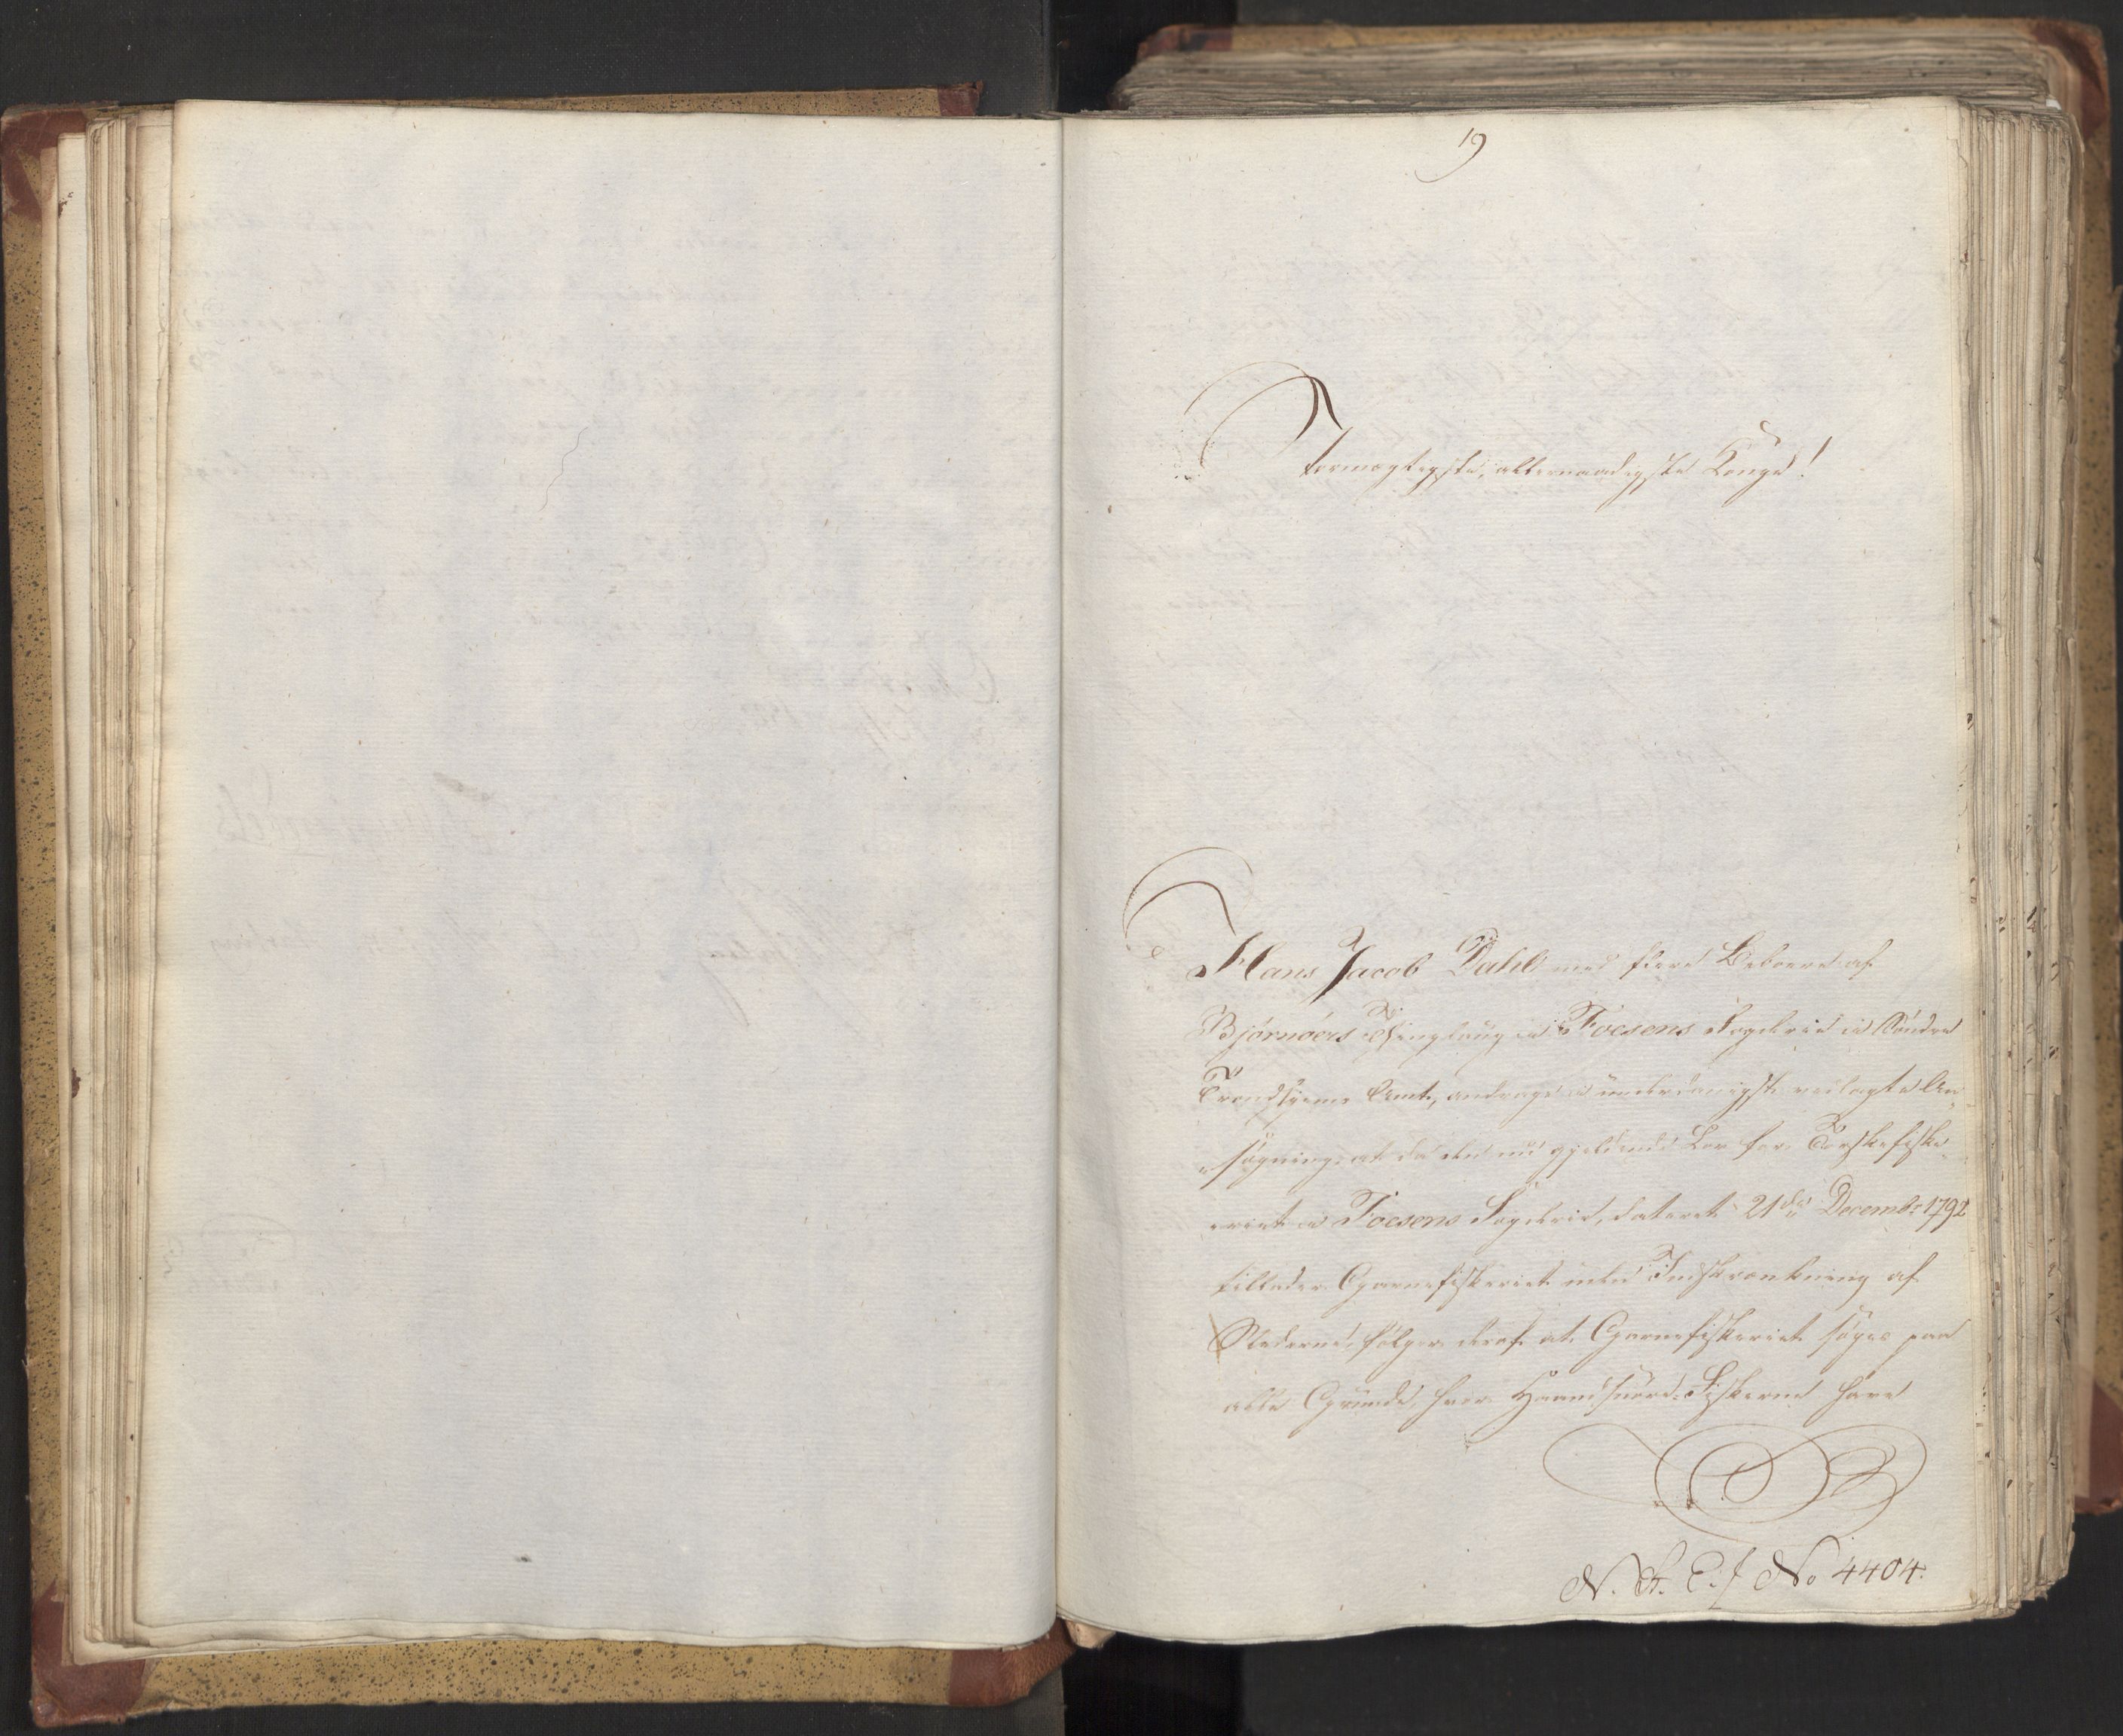 19
Stormægtigste, allernaadigste Konge!
Hans Jacob Dahl med flere Beboere af
Bjørnøers Thinglaug i Foesens Fogderie i Søndre
Trondhjems Amt, andrage i underdanigst vedlagte An-
søgning, at da den nu gjeldende Lov for Torskefiske-
riet i Foesens Fogderie, dateret 21de Decembr 1792
tillader Garnefiskeriet uden Indskrænkning af
Stederne, følger deraf at Garnefiskeriet søges paa
alle Grunde, hvor Haandsnøre-Fiskerne have
N. R. E. f No 4404.